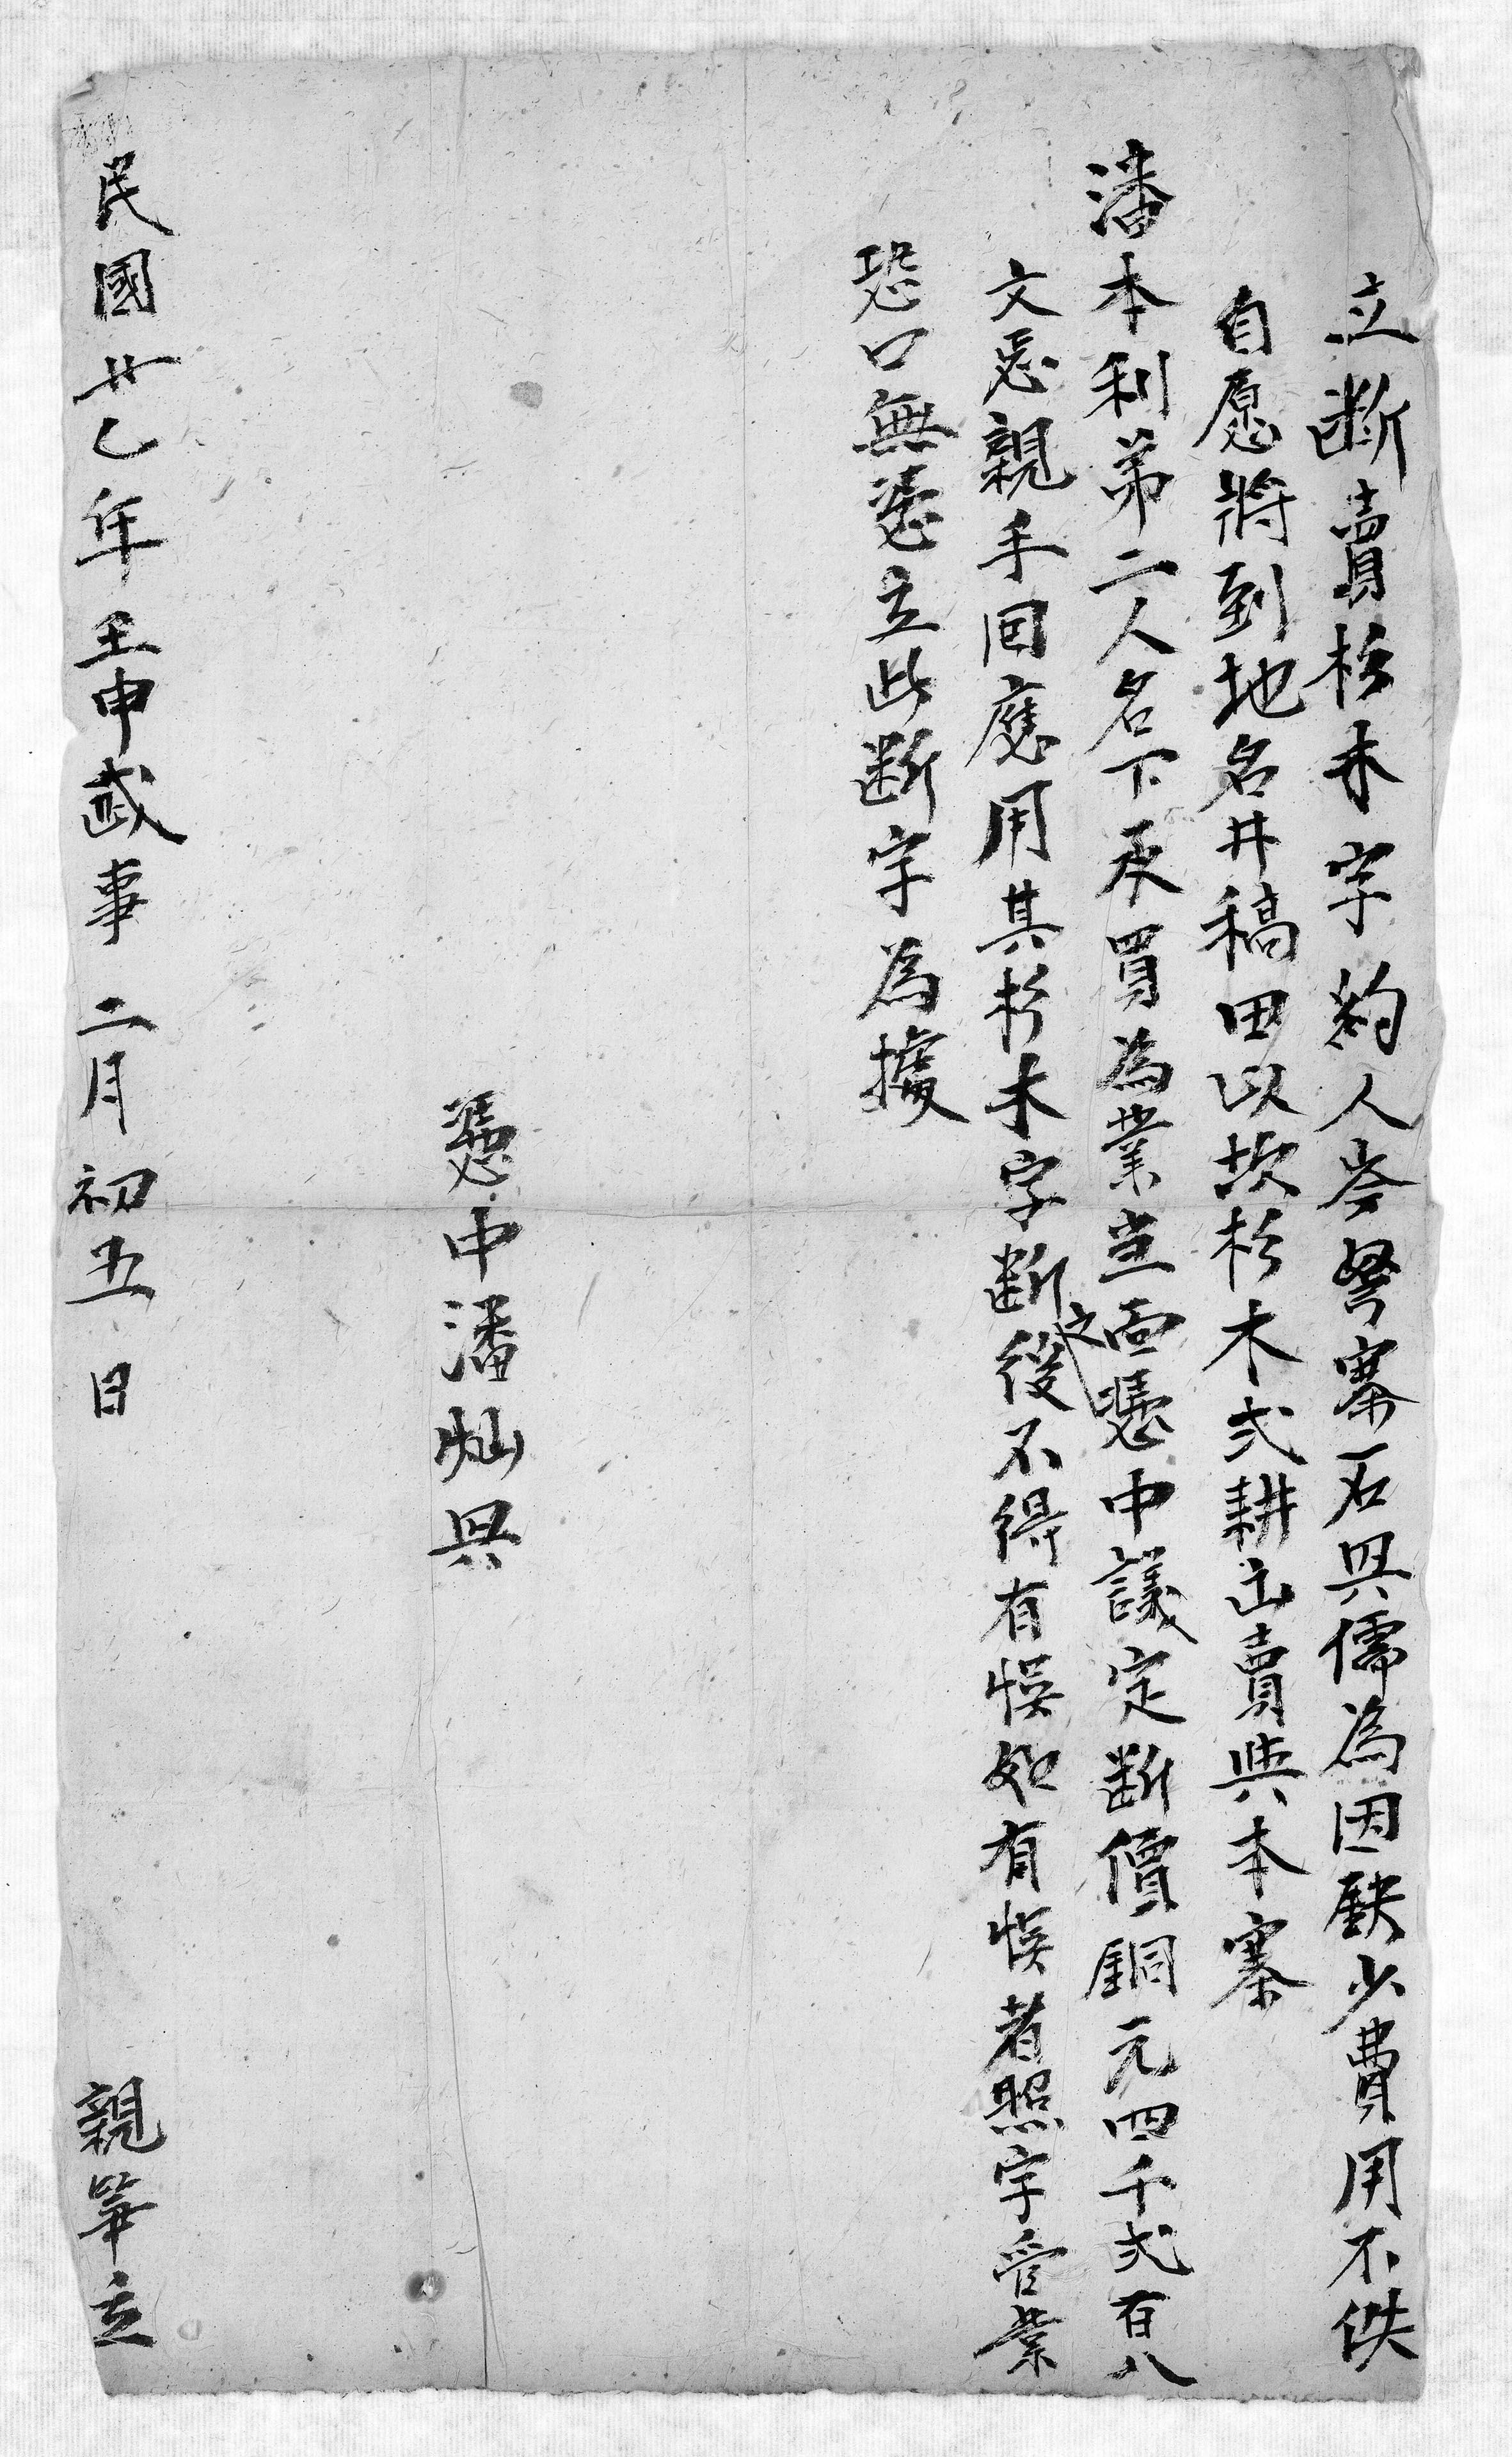 立断賣杉木字約人岑努寨石具儒為因缺少費用不佚
自愿將到地名井稿田以坎杉木弍耕出賣與本寨
潘本利弟二人名下承買為業当面憑中議定断價銅元四千弍百八
文忌親手回應用其杉木字断之後不得有悮如有悮者照字管業
恐口無憑立此断字為據
憑中潘灿具
民國廿乙年壬申歲事二月初五日
親筆立